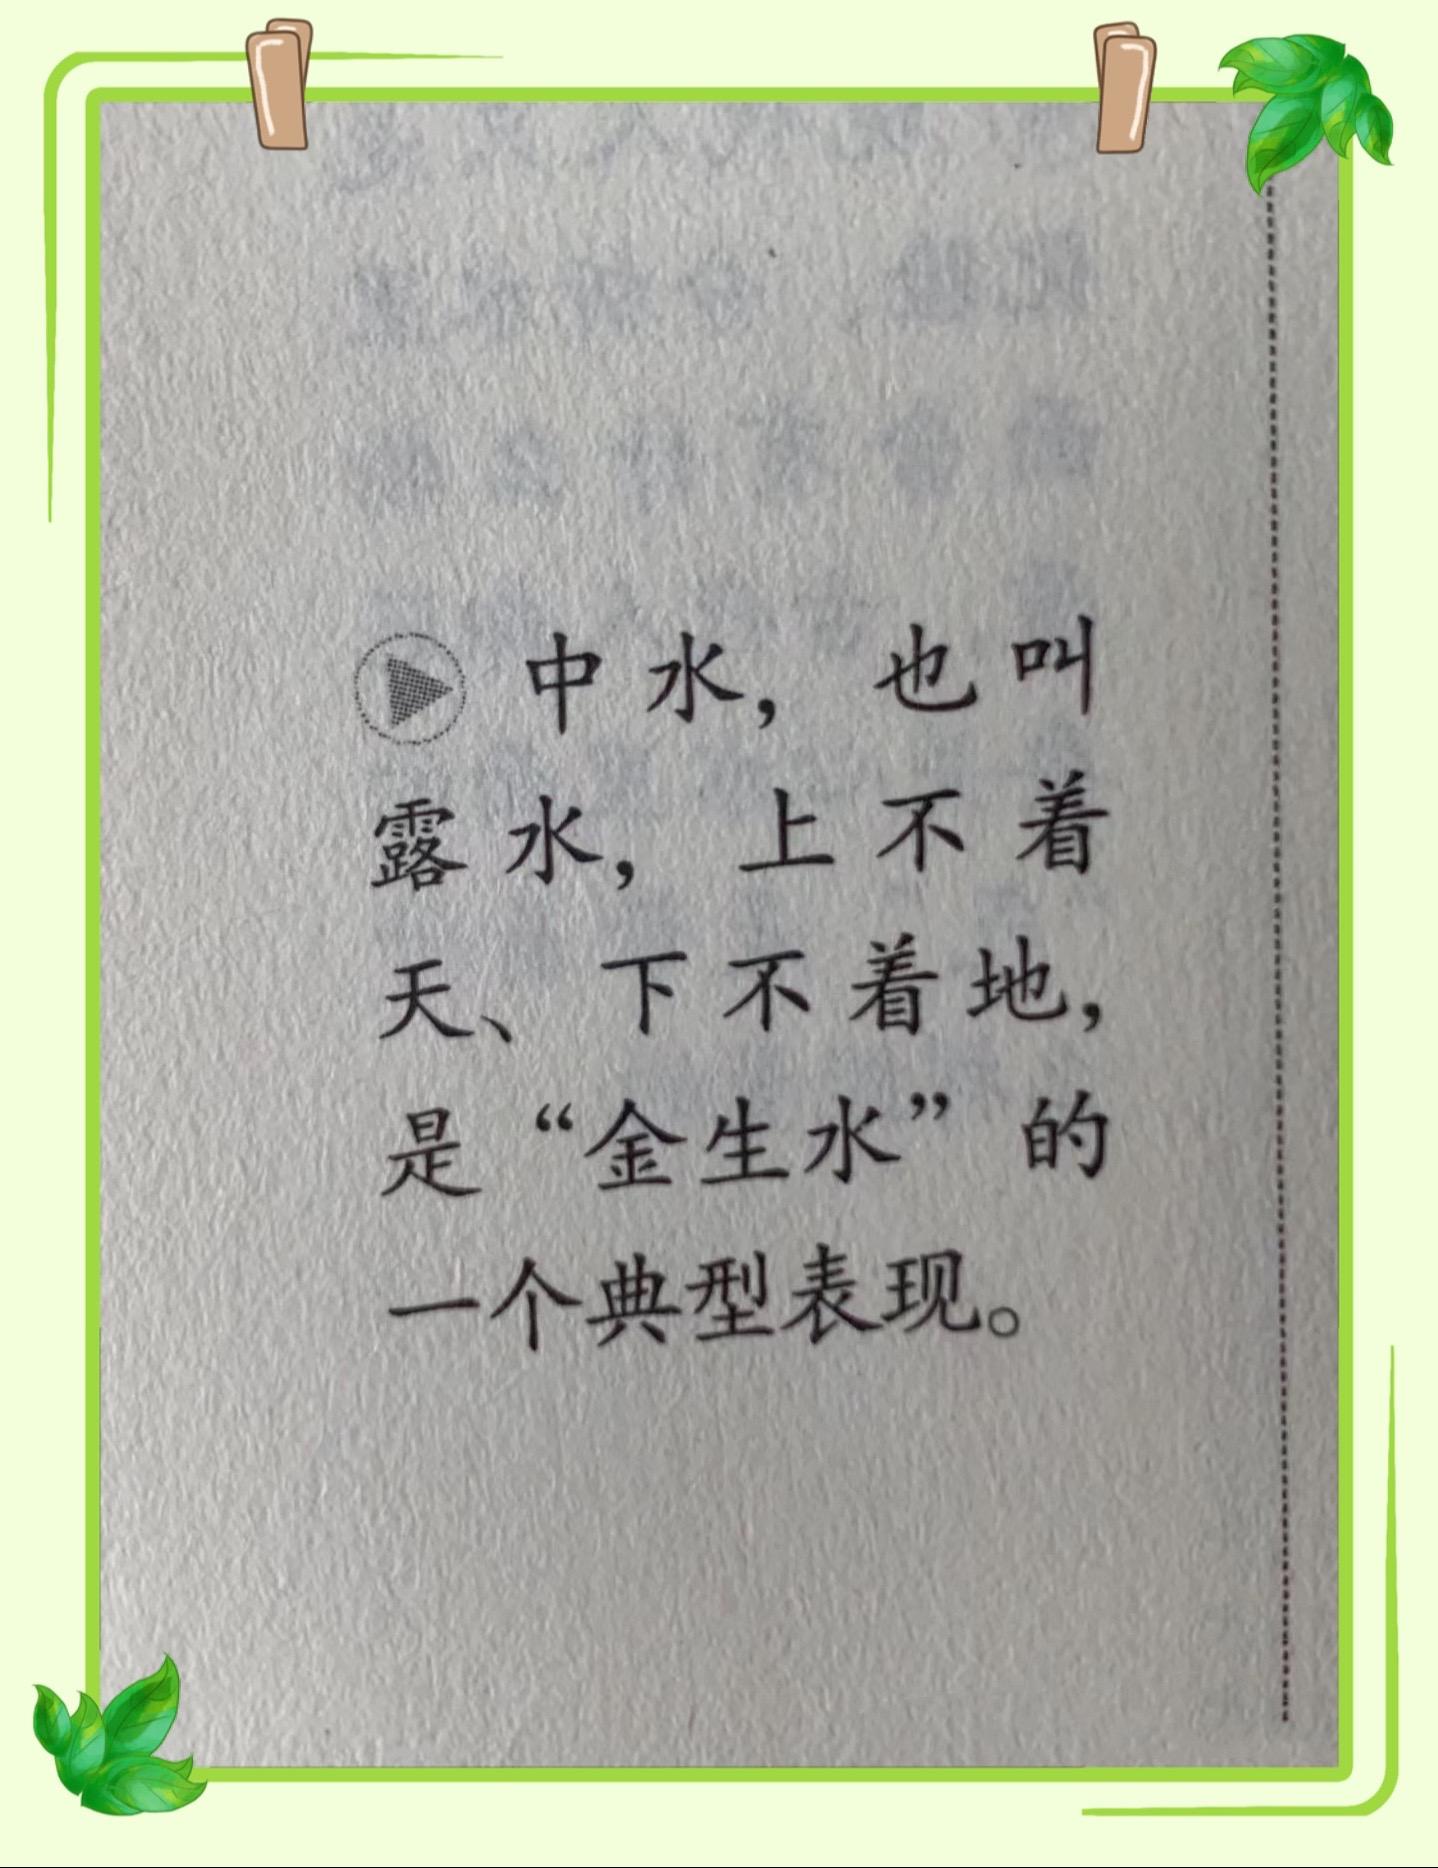 中水，也叫
露水，上不着
天、下不着地，
是“金生水”的
一个典型表现。